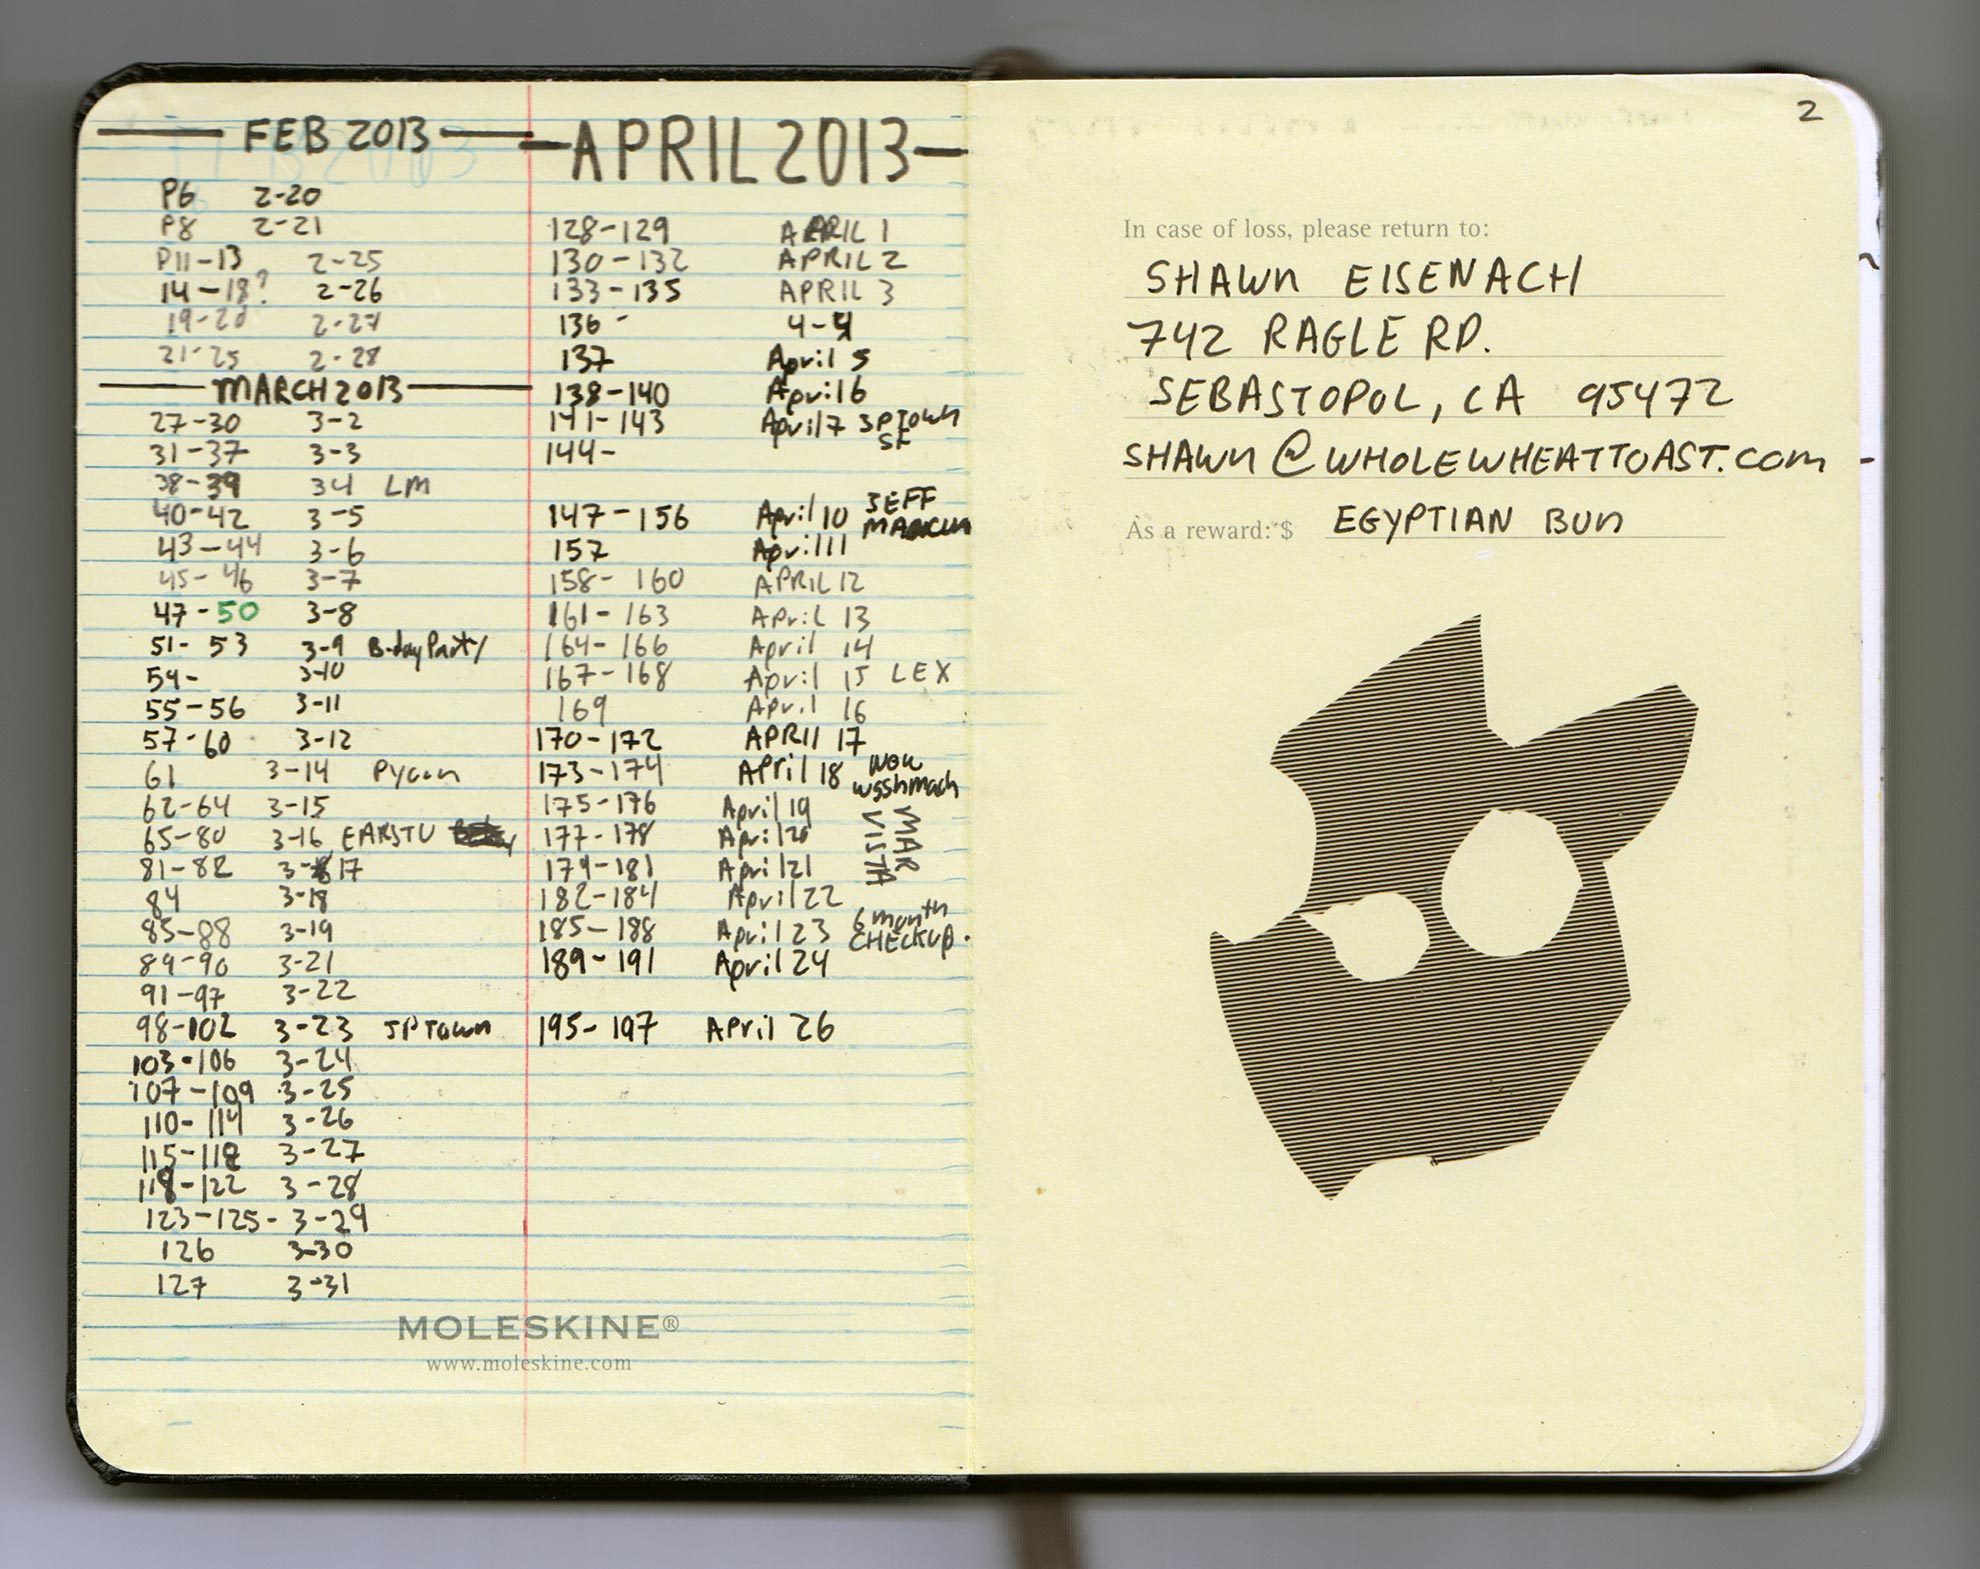 FEB 2013
P6 2-20
P8 2-21
P11-13 2-25
14-18? 2-26
19-20 2-27
21-25 2-28
MARCH 2013
27-30 3-2
31-37 3-3
38-39 34 LM
40-42 3-5
43-44 3-6
45-46 3-7
47-50 3-8
51-53 3-9 B-day Party
54- 3-10
55-56 3-11
57-60 3-12
61 3-14 Pycon
62-64 3-15
65-80 3-16 EARSTU
81-82 3-17
84 3-18
85-88 3-19
89-90 3-21
91-97 3-22
98-102 3-23 JPTOWN
103-106 3-24
107-109 3-25
110-114 3-26
115-118 3-27
118-122 3-28
123-125- 3-29
126 3-30
127 3-31
APRIL 2013
128-129 APRIL 1
130-132 APRIL 2
133-135 APRIL 3
136- 4-4
137 April 5
138-140 April 6
141-143 April 7 JPTOWN
SF
144-
147-156 April 10 JEFF
157 April 11
158-160 APRIL 12
161-163 April 13
164-166 April 14
167-168 April 15 LEX
169 April 16
170-172 APRIL 17
173-174 APRIL 18
175-176 April 19
177-178 April 20
179-181 April 21
MAR
VISTA
182-184 April 22
185-188 April 23 6 month
CHECKUP.
189-191 April 24
195-197 April 26
MOLESKINE®
www.moleskine.com
2
In case of loss, please return to:
SHAWN EISENACH
742 RAGLE RD.
SEBASTOPOL, CA 95472
SHAWN@WHOLEWHEATTOAST.COM
As a reward: $ EGYPTIAN BUN